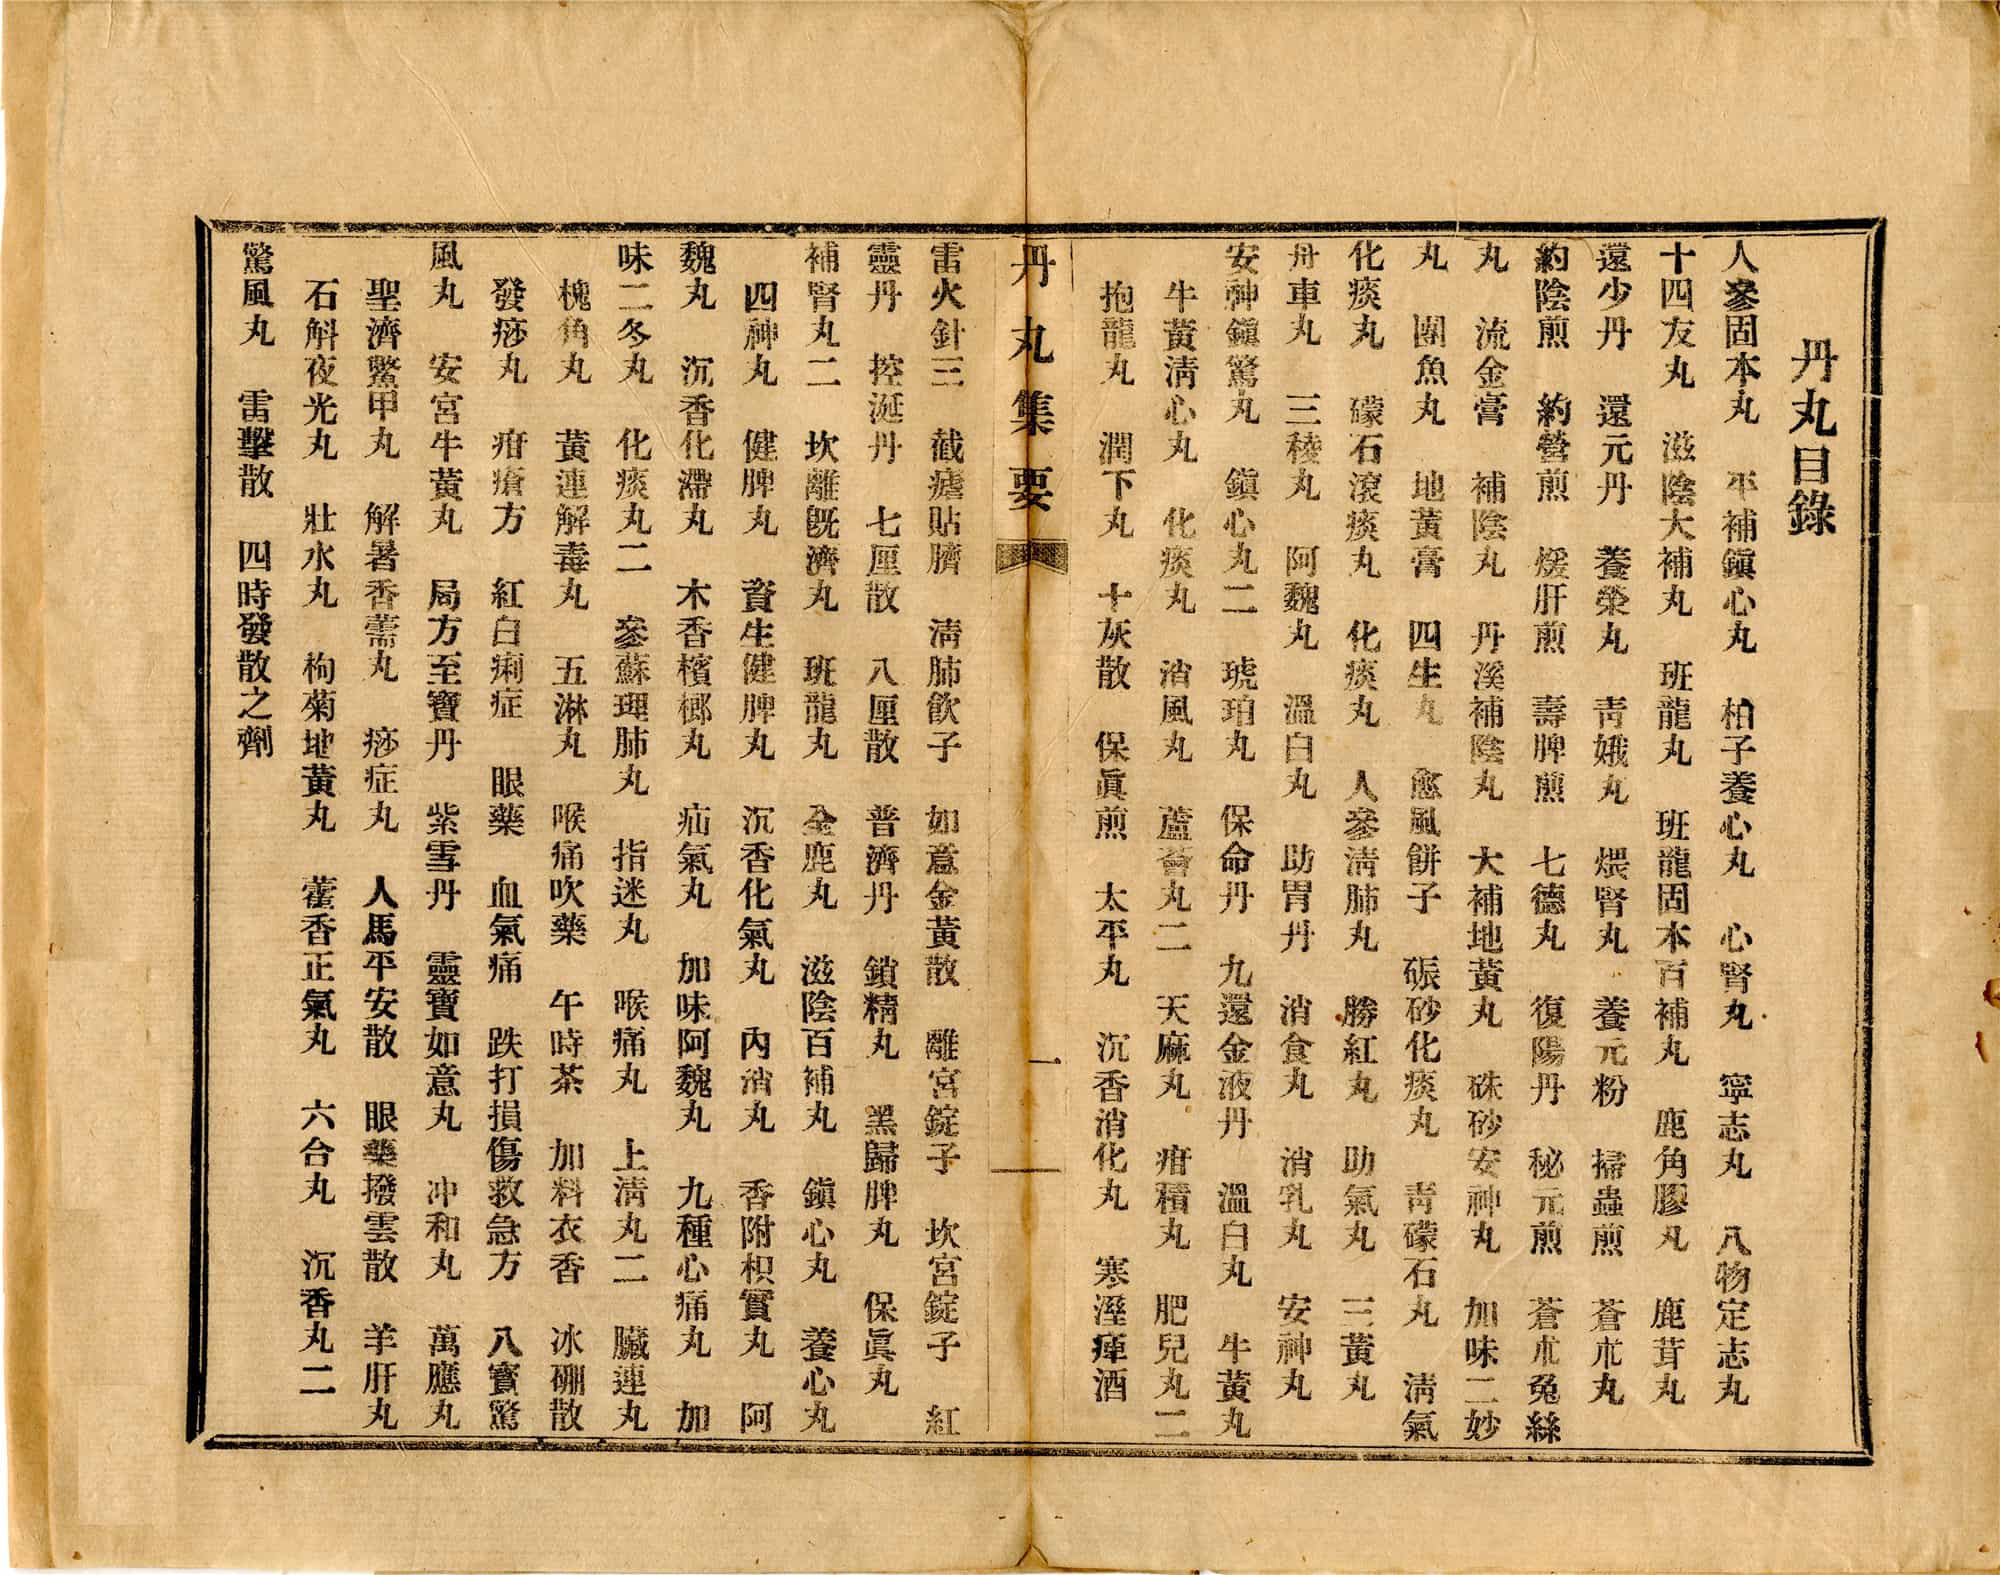 丹丸目錄
人參固本丸 平補鎮心丸 柏子養心丸 心腎丸 寧志丸 八物定志丸
十四友丸 滋陰大補丸 班龍丸 班龍固本百補丸 鹿角膠丸 鹿茸丸
還少丹 還元丹 養榮丸 靑娥丸 煨腎丸 養元粉 掃蟲煎 蒼朮丸
約陰煎 約營煎 煖肝煎 壽脾煎 七德丸 復陽丹 秘元煎 蒼朮兔絲
丸 流金膏 補陰丸 丹溪補陰丸 大補地黃丸 硃砂安神丸 加味二妙
丸 團魚丸 地黃膏 四生丸 愈風餅子 碾砂化痰丸 靑礞石丸 淸氣
化痰丸 礞石滾痰丸 化痰丸 人參淸肺丸 勝紅丸 助氣丸 三黃丸
舟車丸 三稜丸 阿魏丸 溫白丸 助胃丹 消食丸 消乳丸 安神丸
安神鎭驚丸 鎭心丸二 琥珀丸 保命丹 九還金液丹 溫白丸 牛黃丸
牛黃淸心丸 化痰丸 消風丸 蘆薈丸二 天麻丸 疳積丸 肥兒丸二
抱龍丸 潤下丸 十灰散 保眞煎 太平丸 沉香消化丸 寒溼痺酒
丹丸集要 一
雷火針三 截瘧貼臍 淸肺飮子 如意金黃散 離宮錠子 坎宮錠子 紅
靈丹 控涎丹 七厘散 八厘散 普濟丹 鎖精丸 黑歸脾丸 保眞丸
補腎丸二 坎離旣濟丸 班龍丸 全鹿丸 滋陰百補丸 鎭心丸 養心丸
四神丸 健脾丸 資生健脾丸 沉香化氣丸 內消丸 香附枳實丸 阿
魏丸 沉香化滯丸 木香檳榔丸 疝氣丸 加味阿魏丸 九種心痛丸 加
味二冬丸 化痰丸二 參蘇理肺丸 指迷丸 喉痛丸 上淸丸二 臟連丸
槐角丸 黃連解毒丸 五淋丸 喉痛吹藥 午時茶 加料衣香 冰硼散
發痧丸 疳瘡方 紅白痢症 眼藥 血氣痛 跌打損傷救急方 八寶驚
風丸 安宮牛黃丸 局方至寶丹 紫雪丹 靈寶如意丸 冲和丸 萬應丸
聖濟鱉甲丸 解暑香薷丸 痧症丸 人馬平安散 眼藥撥雲散 羊肝丸
石斛夜光丸 壯水丸 枸菊地黃丸 藿香正氣丸 六合丸 沉香丸二
驚風丸 雷擊散 四時發散之劑